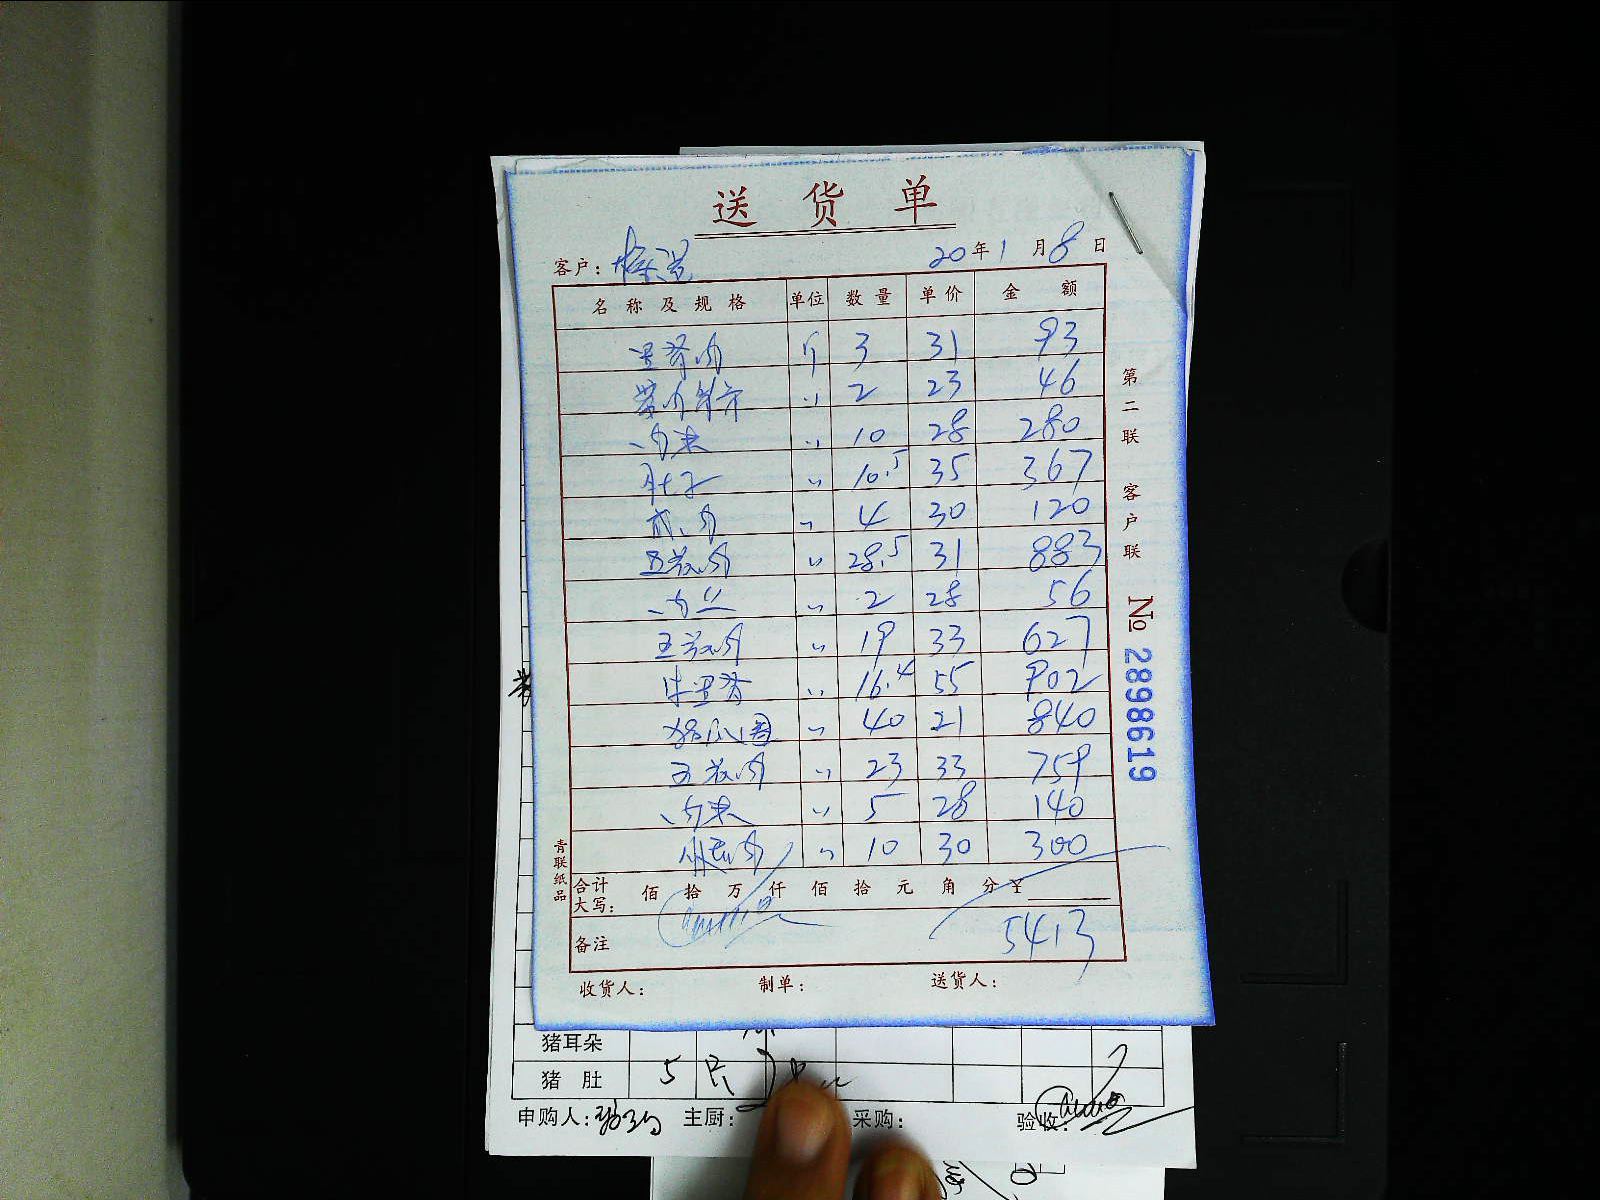 送货单
客户: 20年1月8日
名称及规格 单位 数量 单价 金额
里脊肉 斤 3 31 93
带肉 〃 2 23 46
肉末 〃 10 28 280
肚子 〃 10.5 35 367
肉 〃 4 30 120
五花肉 〃 28.5 31 883
肉丝 〃 2 28 56
五花肉 〃 19 33 627
牛里脊 〃 16.4 55 902
猪 〃 40 21 840
五花肉 〃 23 33 759
肉末 〃 5 28 140
肉 〃 10 30 300
合计大写: 佰 拾 万 仟 佰 拾 元 角 分 ¥
备注 5413
收货人: 制单: 送货人:
第二联 客户联
№ 2898619
青联纸品
猪耳朵
猪肚 5
申购人: 主厨: 采购: 验收: